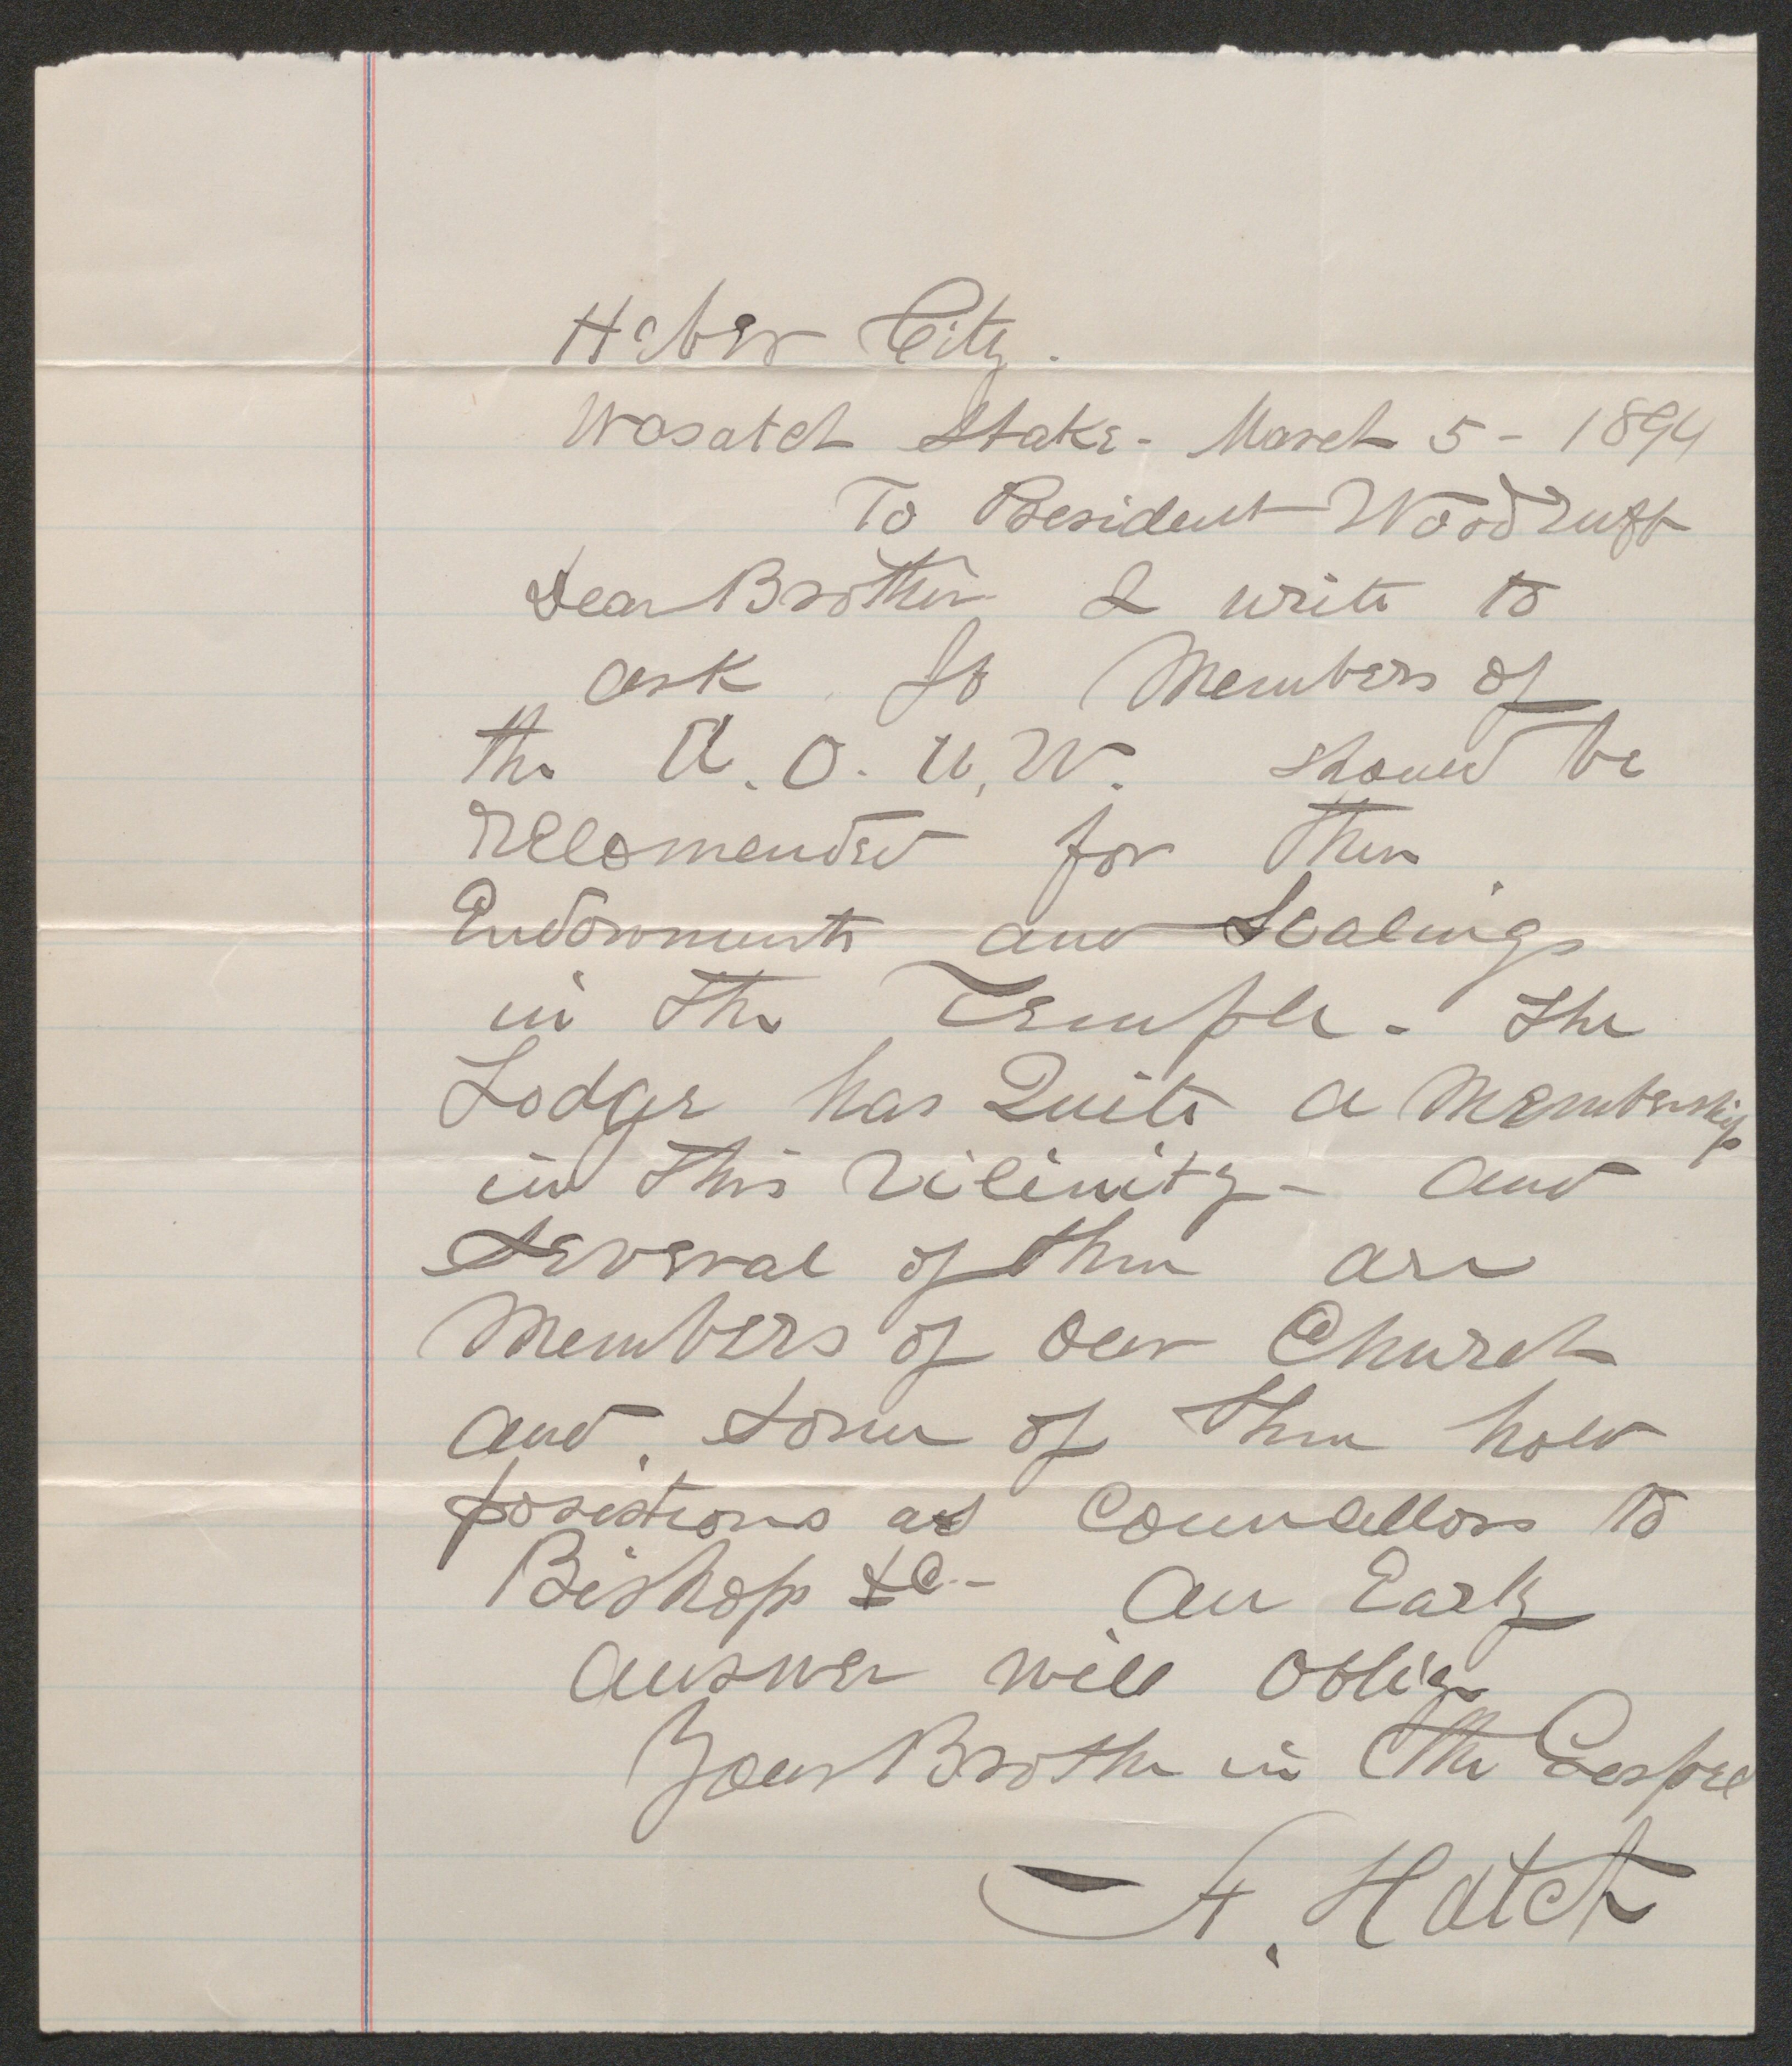 Heber City.
Wasatch Stake - March 5 - 1894
To President Woodruff
Dear Brother I write to
ask If Members of
the A. O. U. W. should be
reccomended for their
Endowments and Sealings
in the Temple - the
Lodge has Quite a Membership
in this vicinity - and
several of them are
Members of our Church
and some of them hold
posistions as Councellors to
Bishops &c - An Early
answer will oblige
Your Brother in the Gospel
A. Hatch